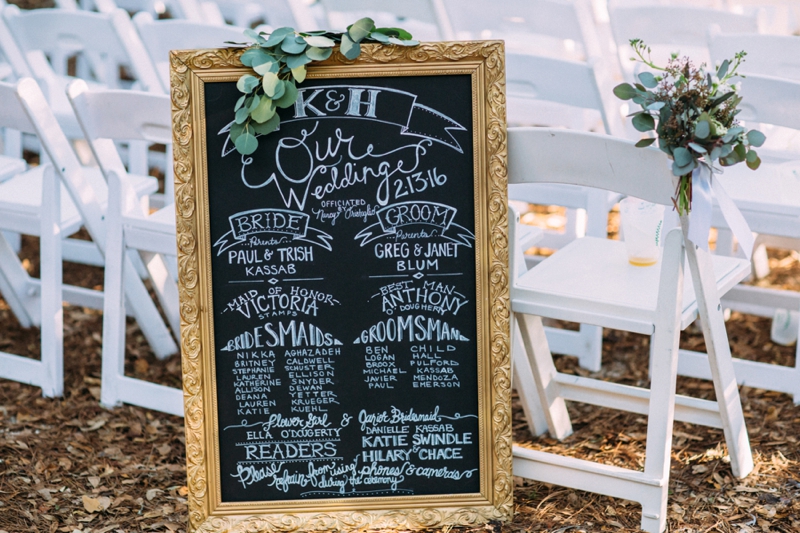 K & H
Our
Weddings
2.13.16
OFFICIATED BY
Nancy
BRIDE
Parents
PAUL & TRISH
KASSAB
GROOM
Parents
GREG & JANET
BLUM
MAID OF HONOR
VICTORIA
STAMPS
BEST MAN
ANTHONY
DOUGHERTY
BRIDESMAIDS
NIKKA AGHAZADEH
BRITNEY CALDWELL
STEPHANIE SCHUSTER
LAUREN ELLISON
KATHERINE SNYDER
ALLISON EWAN
DEANA YETTER
LAUREN KRUEGER
KATIE KUEHL
GROOMSMAN
BEN CHILD
LOGAN HALL
BROOX PULFORD
MICHAEL KASSAB
JAVIER MENDOZA
PAUL EMERSON
Flower Girl & Junior Bridesmaid
ELLA O'DOUGERTY DANIELLE KASSAB
READERS KATIE SWINDLE
& HILARY CHACE
Please refrain from using phones & cameras
during the ceremony